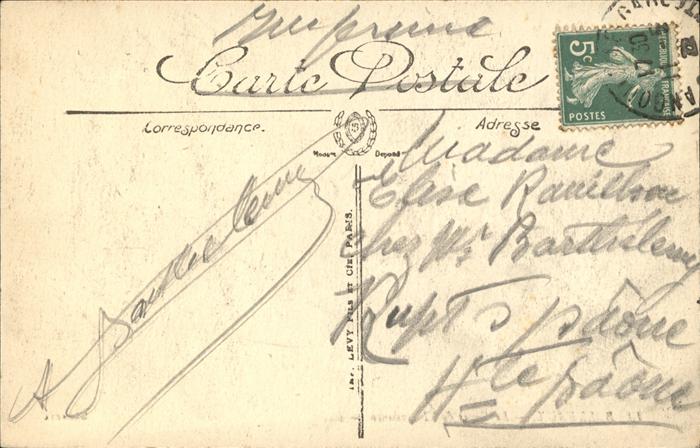 Imprimé
Carte Postale
Correspondance.
Adresse
Modèle Déposé
5c
POSTES
A Barthelemy
Madame
Elise
chez Mr Barthélemy
Rupt s/ Saône
Hte Saône
IMP. LEVY FILS ET CIE, PARIS.